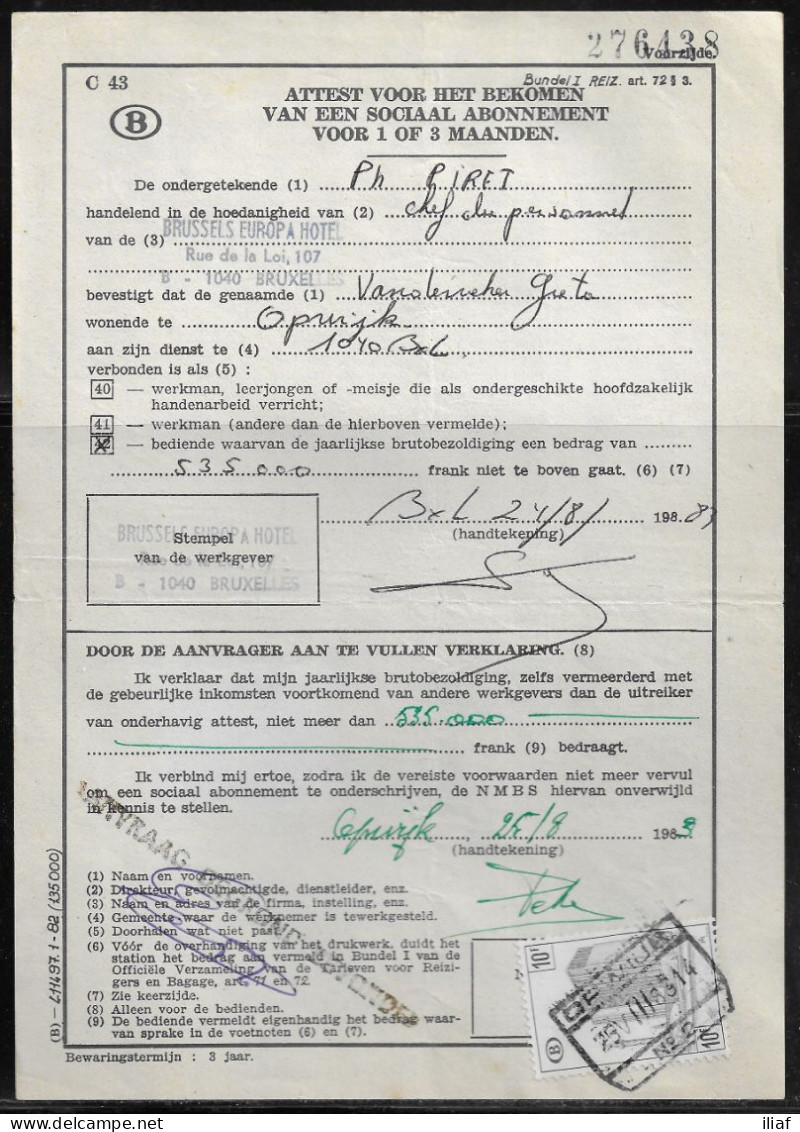 276438
Voorzijde.
C 43
Bundel I REIZ. art. 72 § 3.
B
ATTEST VOOR HET BEKOMEN
VAN EEN SOCIAAL ABONNEMENT
VOOR 1 OF 3 MAANDEN.
De ondergetekende (1) Ph PIRET
handelend in de hoedanigheid van (2) chef du personnel
van de (3) BRUSSELS EUROPA HOTEL
Rue de la Loi, 107
B - 1040 BRUXELLES
bevestigt dat de genaamde (1) Greta
wonende te Opwijk
aan zijn dienst te (4) 1040 BxL
verbonden is als (5) :
40 — werkman, leerjongen of -meisje die als ondergeschikte hoofdzakelijk
handenarbeid verricht;
41 — werkman (andere dan de hierboven vermelde);
42 — bediende waarvan de jaarlijkse brutobezoldiging een bedrag van
535 000 frank niet te boven gaat. (6) (7)
BxL 24/8/ 198 83
(handtekening)
BRUSSELS EUROPA HOTEL
Stempel
Rue de la Loi, 107
van de werkgever
B - 1040 BRUXELLES
DOOR DE AANVRAGER AAN TE VULLEN VERKLARING. (8)
Ik verklaar dat mijn jaarlijkse brutobezoldiging, zelfs vermeerderd met
de gebeurlijke inkomsten voortkomend van andere werkgevers dan de uitreiker
van onderhavig attest, niet meer dan 535.000
frank (9) bedraagt.
Ik verbind mij ertoe, zodra ik de vereiste voorwaarden niet meer vervul
om een sociaal abonnement te onderschrijven, de NMBS hiervan onverwijld
in kennis te stellen.
Opwijk, 25/8 1983
(handtekening)
(1) Naam en voornamen.
(2) Direkteur, gevolmachtigde, dienstleider, enz.
(3) Naam en adres van de firma, instelling, enz.
(4) Gemeente waar de werknemer is tewerkgesteld.
(5) Doorhalen wat niet past.
(6) Vóór de overhandiging van het drukwerk, duidt het
station het bedrag aan vermeld in Bundel I van de
Officiële Verzameling van de Tarieven voor Reizi-
gers en Bagage, art. 71 en 72.
(7) Zie keerzijde.
(8) Alleen voor de bedienden.
(9) De bediende vermeldt eigenhandig het bedrag waar-
van sprake in de voetnoten (6) en (7).
Bewaringstermijn : 3 jaar.
(B) — 411497.1 - 82 (135000)
AANVRAAG
10F
10F
B
Nº 2
iliaf